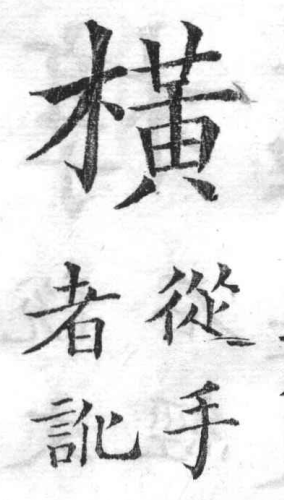 橫
從手
者訛